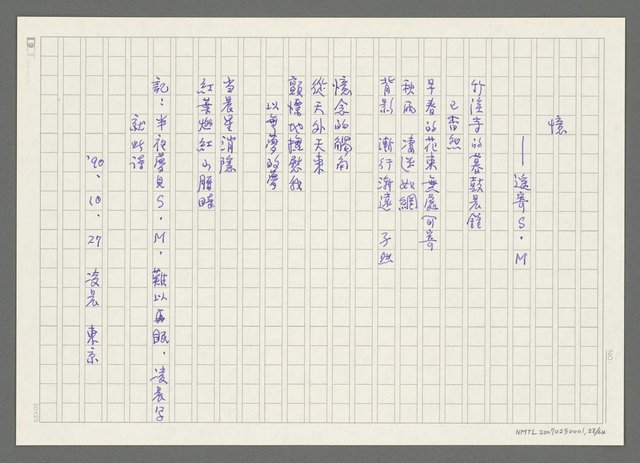 憶
——遙寄S.M
外淡寺的暮鼓晨鐘
已杳然
早春的花束無處可寄
秋雨 淒迷如網
背影 漸行漸遠 孑然
憶念的觸角
從天外天來
顫慄地撫慰我
以無夢的夢
當晨星消隱
紅葉燃紅山腰時
記：半夜夢見S.M，難以再眠，凌晨写
就此詩
'90.10.27 凌晨 東京
NO.
20X25
NMTL20070250001,23/64